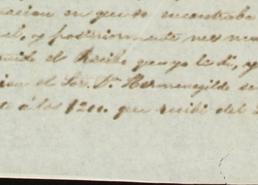 en que se encontraba
y posteriormente nos
el Recibo que yo le di, y
el Sor. Dn. Hermenegildo
á los 1200. que recibi del